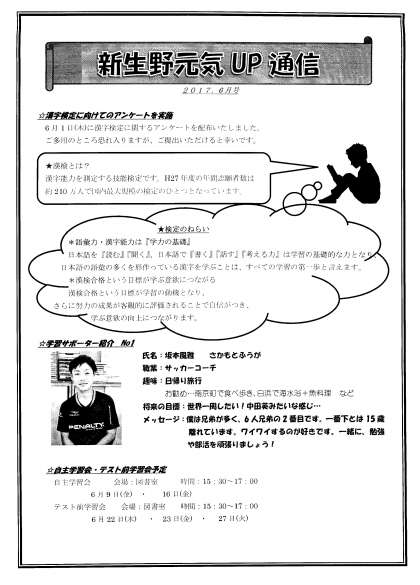 新生野元気 UP 通信
2017.6月号
☆漢字検定に向けてのアンケートを実施
6月1日(木)に漢字検定に関するアンケートを配布いたしました。
ご多用のところ恐れ入りますが、ご提出いただけると幸いです。
★漢検とは?
漢字能力を測定する技能検定です。H27年度の年間志願者数は
約210万人で国内最大規模の検定のひとつとなっています。
★検定のねらい
＊語彙力・漢字能力は『学力の基礎』
日本語を『読む』『聞く』、日本語で『書く』『話す』『考える力』は学習の基礎的な力となり、
日本語の語彙の多くを形作っている漢字を学ぶことは、すべての学習の第一歩と言えます。
＊漢検合格という目標が学ぶ意欲につながる
漢検合格という目標が学習の動機となり、
さらに努力の成果が客観的に評価されることで自信がつき、
学ぶ意欲の向上につながります。
☆学習サポーター紹介 No1
氏名：坂本風雅 さかもとふうが
職業：サッカーコーチ
趣味：日帰り旅行
お勧め…南京町で食べ歩き、白浜で海水浴＋魚料理 など
将来の目標：世界一周したい！中田英みたいな感じ…
メッセージ：僕は兄弟が多く、6人兄弟の2番目です。一番下とは15歳
離れています。ワイワイするのが好きです。一緒に、勉強
や部活を頑張りましょう！
PENALTY
☆自主学習会・テスト前学習会予定
自主学習会 会場：図書室 時間：15：30～17：00
6月9日(金) ・ 16日(金)
テスト前学習会 会場：図書室 時間：15：30～17：00
6月22日(木) ・ 23日(金) ・ 27日(火)